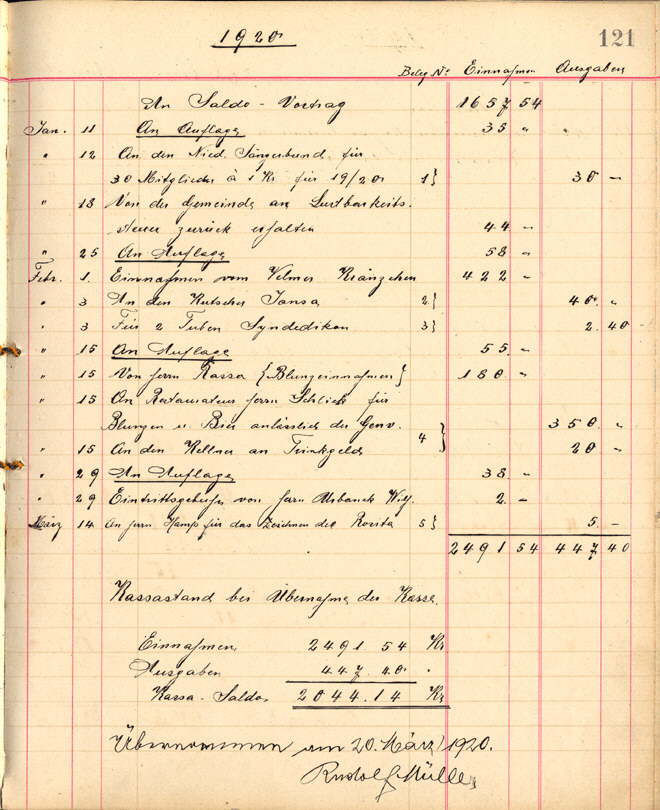 1920
121
Beleg № Einnahmen Ausgaben
An Saldo-Vortrag 1657 54
Jan. 11 An Auflage 35 „ „
" 12 An den Nied. Sängerbund für
30 Mitglieder à 1 Kr für 19/20 1} 30 –
" 18 Von der Gemeinde an Lustbarkeits.
steuer zurück erhalten 44 –
" 25 An Auflage 58 –
Febr. 1. Einnahmen vom Velmer Kränzchen 422 –
" 3 An den Kutscher Jansa 2} 40 „
" 3 Für 2 Tuben Syndedikon 3} 2. 40
" 15 An Auflage 55. –
" 15 Von Herrn Kassa {Blunzeinnahmen} 180 –
" 15 An Restaurateur Herrn Schlick für
Blunzen u. Bier anlässlich der Genv. 350 „
" 15 An den Kellner an Trinkgelds 4 } 20 –
" 29 An Auflage 38 –
" 29 Eintrittsgebühr von Herrn Urbanek 2. –
März 14. An Herrn Kamp für das Zeichnen des Rosita 5} 5 –
2491 54 447 40
Kassastand bei Übernahme der Kasse.
Einnahmen 2491. 54 Kr
Ausgaben 447. 40 "
Kassa-Saldo 2044.14 Kr
Übernommen am 20. März 1920.
Rudolf Müller